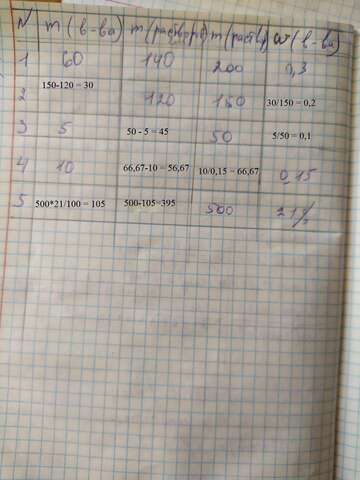 N m (в-ва) m (раствор) m (раств) ω (в-ва)
1 60 140 200 0,3
2 150-120 = 30 120 150 30/150 = 0,2
3 5 50 - 5 = 45 50 5/50 = 0,1
4 10 66,67-10 = 56,67 10/0,15 = 66,67 0,15
5 500*21/100 = 105 500-105=395 500 21%